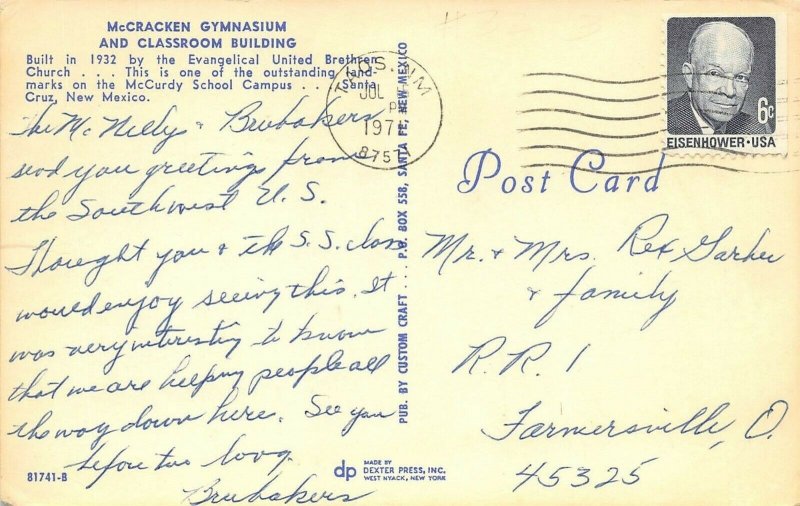 McCRACKEN GYMNASIUM
AND CLASSROOM BUILDING
Built in 1932 by the Evangelical United Brethren
Church . . . This is one of the outstanding land-
marks on the McCurdy School Campus . . . Santa
Cruz, New Mexico.
The McNellys & Brubakers
send you greetings from
the Southwest U.S.
Thought you & the S.S. class
would enjoy seeing this. It
was very interesting to know
that we are helping people all
the way down here. See you
before too long
Brubakers
81741-B
PUB. BY CUSTOM CRAFT . . . P.O. BOX 558, SANTA FE, NEW MEXICO
dp
MADE BY
DEXTER PRESS, INC.
WEST NYACK, NEW YORK
TAOS, NM
JUL
PM
197
8757
6c
EISENHOWER·USA
Post Card
Mr. & Mrs. Rex Garber
& family
R.R. 1
Farmersville, O.
45325